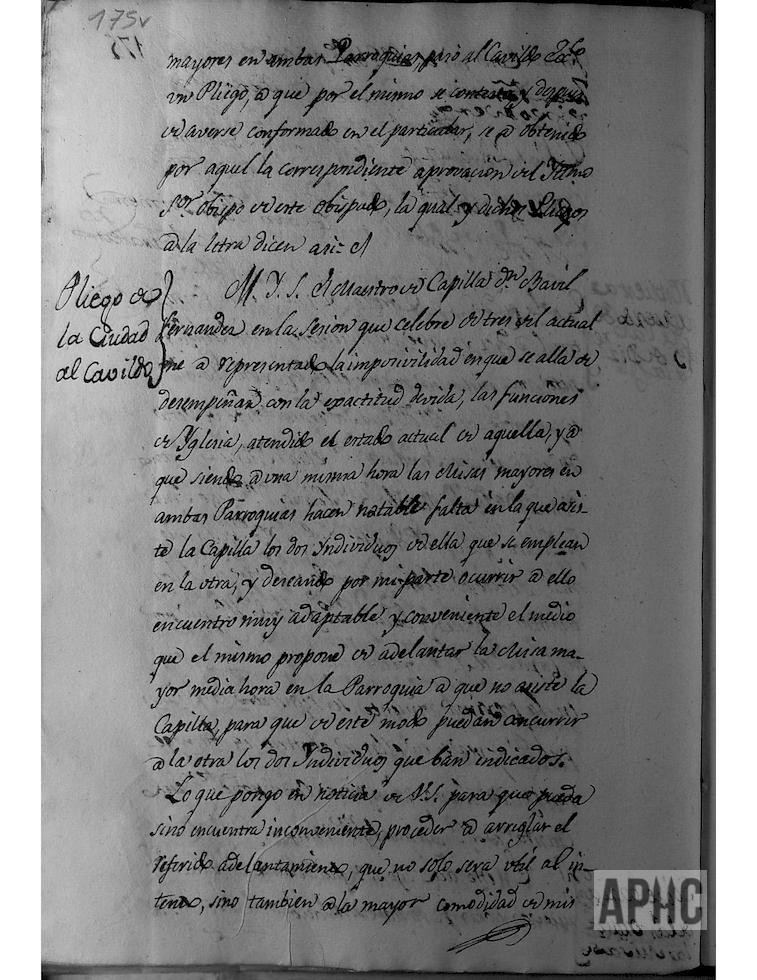 175v
mayores en ambas Parroquias, pasó al Cavildo
un Pliego, a que por el mismo se contestó, y despues
de averse conformado en el particular, se a obtenido
por aquel la correspondiente aprovacion del Illmo
Sor. Obispo de este Obispado, la qual y dichos Pliegos
a la letra dicen asi=
Pliego de
la Ciudad
al Cavildo
M. Y. S. El Maestro de Capilla Dn. Bavil
Fernandez en la sesion que celebre de tres del actual
me a representado la imposivilidad en que se alla de
desempeñar con la exactitud devida, las funciones
de Yglesia, atendido el estado actual de aquella, y a
que siendo a una misma hora las Misas mayores en
ambas Parroquias hacen notable falta en la que asis-
te la Capilla los dos Yndividuos de ella que se emplean
en la otra, y deseando por mi parte ocurrir a ello
encuentro muy adaptable y conveniente el medio
que el mismo propone de adelantar la Misa ma-
yor media hora en la Parroquia a que no asiste la
Capilla, para que de este modo puedan concurrir
a la otra los dos Yndividuos que ban indicados.
Lo que pongo en noticia de V.S. para que pueda
sino encuentra inconveniente, proceder a arreglar el
referido adelantamiento, que no solo sera util al in-
tento, sino tambien a la mayor comodidad de mis
APHC